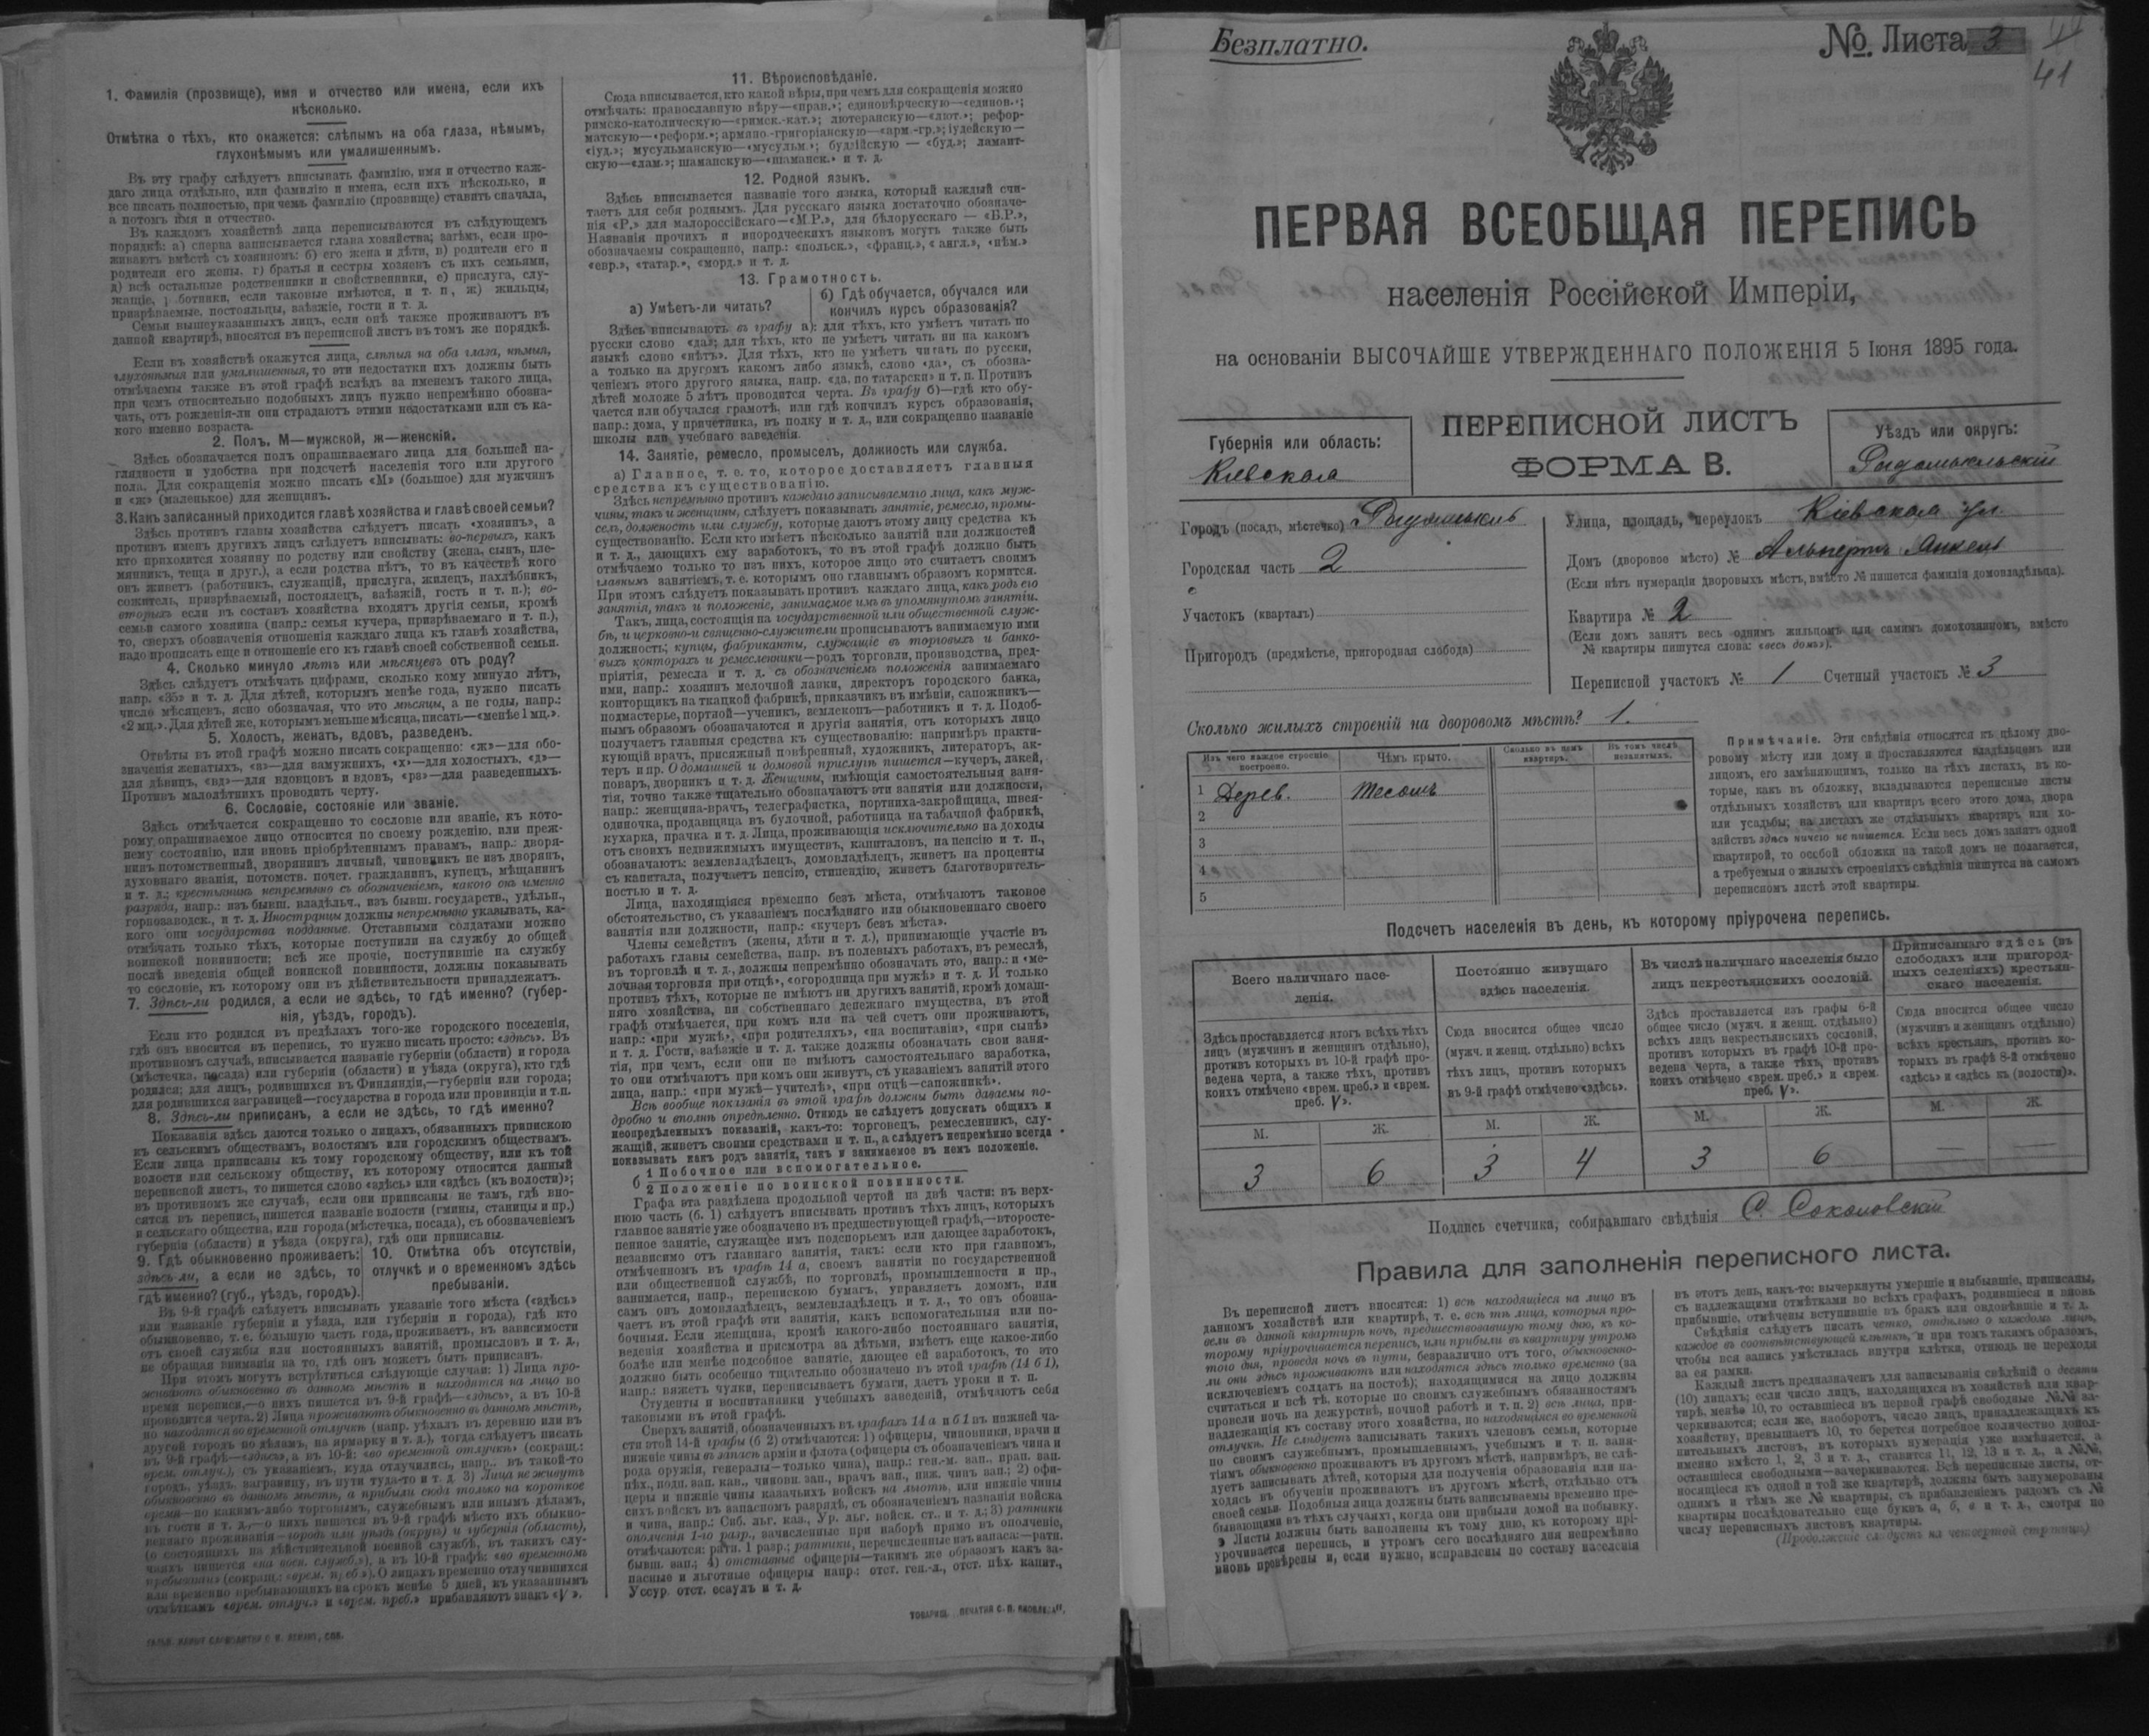 1. Фамилія (прозвище), имя и отчество или имена, если ихъ
нѣсколько.
Отмѣтка о тѣхъ, кто окажется: слѣпымъ на оба глаза, нѣмымъ,
глухонѣмымъ или умалишеннымъ.
Въ эту графу слѣдуетъ вписывать фамилію, имя и отчество каж-
даго лица отдѣльно, или фамилію и имена, если ихъ нѣсколько, и
все писать полностью, при чемъ фамилію (прозвище) ставить сначала,
а потомъ имя и отчество.
Въ каждомъ хозяйствѣ лица переписываются въ слѣдующемъ
порядкѣ: а) сперва записывается глава хозяйства; затѣмъ, если про-
живаютъ вмѣстѣ съ хозяиномъ: б) его жена и дѣти, в) родители его и
родители его жены. г) братья и сестры хозяевъ съ ихъ семьями,
д) всѣ остальные родственники и свойственники, е) прислуга, слу-
жащіе, ботники, если таковые имѣются, и т. п, ж) жильцы,
призрѣваемые, постояльцы, заѣзжіе, гости и т. д.
Семьи вышеуказанныхъ лицъ, если онѣ также проживаютъ въ
данной квартирѣ, вносятся въ переписной листъ въ томъ же порядкѣ.
Если въ хозяйствѣ окажутся лица, слѣпыя на оба глаза, нѣмыя,
глухонѣмыя или умалишенныя, то эти недостатки ихъ должны быть
отмѣчаемы также въ этой графѣ вслѣдъ за именемъ такого лица,
при чемъ относительно подобныхъ лицъ нужно непремѣнно обозна-
чать, отъ рожденія-ли они страдаютъ этими недостатками или съ ка-
кого именно возраста.
2. Полъ. М—мужской, ж—женскій.
Здѣсь обозначается полъ опрашиваемаго лица для большей на-
глядности и удобства при подсчетѣ населенія того или другого
пола. Для сокращенія можно писать «М» (большое) для мужчинъ
и «ж» (маленькое) для женщинъ.
3. Какъ записанный приходится главѣ хозяйства и главѣ своей семьи?
Здѣсь противъ главы хозяйства слѣдуетъ писать «хозяинъ», а
противъ именъ другихъ лицъ слѣдуетъ вписывать: во-первыхъ, какъ
кто приходится хозяину по родству или свойству (жена, сынъ, пле-
мянникъ, теща и друг.), а если родства нѣтъ, то въ качествѣ кого
онъ живетъ (работникъ, служащій, прислуга, жилецъ, нахлѣбникъ,
сожитель, призрѣваемый, постоялецъ, заѣзжій, гость и т. п.); во-
вторыхъ если въ составъ хозяйства входятъ другія семьи, кромѣ
семьи самого хозяина (напр.: семья кучера, призрѣваемаго и т. п.),
то, сверхъ обозначенія отношенія каждаго лица къ главѣ хозяйства,
надо прописать еще и отношеніе его къ главѣ своей собственной семьи.
4. Сколько минуло лѣтъ или мѣсяцевъ отъ роду?
Здѣсь слѣдуетъ отмѣчать цифрами, сколько кому минуло лѣтъ,
напр. «35» и т. д. Для дѣтей, которымъ менѣе года, нужно писать
число мѣсяцевъ, ясно обозначая, что это мѣсяцы, а не годы, напр.:
«2 мц.». Для дѣтей же, которымъ меньше мѣсяца, писать—«менѣе 1 мц.».
5. Холостъ, женатъ, вдовъ, разведенъ.
Отвѣты въ этой графѣ можно писать сокращенно: «ж»—для обо-
значенія женатыхъ, «з»—для замужнихъ, «х»—для холостыхъ, «д»—
для дѣвицъ, «вд»—для вдовцовъ и вдовъ, «рз»—для разведенныхъ.
Противъ малолѣтнихъ проводить черту.
6. Сословіе, состояніе или званіе.
Здѣсь отмѣчается сокращенно то сословіе или званіе, къ кото-
рому опрашиваемое лицо относится по своему рожденію, или преж-
нему состоянію, или вновь пріобрѣтеннымъ правамъ, напр.: дворя-
нинъ потомственный, дворянинъ личный, чиновникъ не изъ дворянъ,
духовнаго званія, потомств. почет. гражданинъ, купецъ, мѣщанинъ
и т. д.; крестьянинъ непремѣнно съ обозначеніемъ, какого онъ именно
разряда, напр.: изъ бывш. владѣльч., изъ бывш. государств., удѣльн.,
горнозаводск., и т. д. Иностранцы должны непремѣнно указывать, ка-
кого они государства подданные. Отставными солдатами можно
отмѣчать только тѣхъ, которые поступили на службу до общей
воинской повинности; всѣ же прочіе, поступившіе на службу
послѣ введенія общей воинской повинности, должны показывать
то сословіе, къ которому они въ дѣйствительности принадлежатъ.
7. Здѣсь-ли родился, а если не здѣсь, то гдѣ именно? (губер-
нія, уѣздъ, городъ).
Если кто родился въ предѣлахъ того-же городского поселенія,
гдѣ онъ вносится въ перепись, то нужно писать просто: «здѣсь». Въ
противномъ случаѣ, вписывается названіе губерніи (области) и города
(мѣстечка. посада) или губерніи (области) и уѣзда (округа), кто гдѣ
родился; для лицъ, родившихся въ Финляндіи,—губерніи или города;
для родившихся заграницей—государства и города или провинціи и т.п.
8. Здѣсь-ли приписанъ, а если не здѣсь, то гдѣ именно?
Показанія здѣсь даются только о лицахъ, обязанныхъ припискою
къ сельскимъ обществамъ, волостямъ или городскимъ обществамъ.
Если лица приписаны къ тому городскому обществу, или къ той
волости или сельскому обществу, къ которому относится данный
переписной листъ, то пишется слово «здѣсь» или «здѣсь (къ волости)»;
въ противномъ же случаѣ, если они приписаны не тамъ, гдѣ вно-
сятся въ перепись, пишется названіе волости (гмины, станицы и пр.)
и сельскаго общества, или города (мѣстечка, посада), съ обозначеніемъ
губерніи (области) и уѣзда (округа), гдѣ они приписаны.
9. Гдѣ обыкновенно проживаетъ:
здѣсь-ли, а если не здѣсь, то
гдѣ именно? (губ., уѣздъ, городъ).
10. Отмѣтка объ отсутствіи,
отлучкѣ и о временномъ здѣсь
пребываніи.
Въ 9-й графѣ слѣдуетъ вписывать указаніе того мѣста («здѣсь»
или названіе губерніи и уѣзда, или губерніи и города), гдѣ кто
обыкновенно, т. е. большую часть года, проживаетъ, въ зависимости
отъ своей службы или постоянныхъ занятій, промысловъ и т. д.,
не обращая вниманія на то, гдѣ онъ можетъ быть приписанъ.
При этомъ могутъ встрѣтиться слѣдующіе случаи: 1) Лица про-
живаютъ обыкновенно въ данномъ мѣстѣ и находятся на лицо во
время переписи,—о нихъ пишется въ 9-й графѣ—«здѣсь», а въ 10-й
проводится черта. 2) Лица проживаютъ обыкновенно въ данномъ мѣстѣ,
но находятся во временной отлучкѣ (напр. уѣхалъ въ деревню или въ
другой городъ по дѣламъ, на ярмарку и т. д.), тогда слѣдуетъ писать
въ 9-й графѣ—«здѣсь», а въ 10-й: «во временной отлучкѣ» (сокращ.:
врем. отлуч.), съ указаніемъ, куда отлучились, напр.. въ такой-то
городъ, уѣздъ, заграницу, въ пути туда-то и т. д. 3) Лица не живутъ
обыкновенно въ данномъ мѣстѣ, а прибыли сюда только на короткое
время—по какимъ-либо торговымъ, служебнымъ или инымъ дѣламъ,
въ гости и т. д.,—о нихъ пишется въ 9-й графѣ мѣсто ихъ обыкно-
веннаго проживанія—городъ или уѣздъ (округъ) и губернія (область),
(о состоящихъ на дѣйствительной военной службѣ, въ такихъ слу-
чаяхъ пишется «на воен. службѣ»), а въ 10-й графѣ: «во временномъ
пребываніи» (сокращ.: «врем. преб.»). О лицахъ временно отлучившихся
или временно пребывающихъ на срокъ менѣе 5 дней, къ указаннымъ
отмѣткамъ «врем. отлуч.» и «врем. преб.» прибавляютъ знакъ «V».
11. Вѣроисповѣданіе.
Сюда вписывается, кто какой вѣры, при чемъ для сокращенія можно
отмѣчать: православную вѣру—«прав.»; единовѣрческую—«единов.»;
римско-католическую—«римск.-кат.»; лютеранскую—«лют.»; рефор-
матскую—«реформ.»; армяно-григоріанскую—«арм.-гр.»; іудейскую—
«іуд.»; мусульманскую—«мусульм.»; буддійскую — «буд.»; ламаит-
скую—«лам.»; шаманскую—«шаманск.» и т. д.
12. Родной языкъ.
Здѣсь вписывается названіе того языка, который каждый счи-
таетъ для себя роднымъ. Для русскаго языка достаточно обозначе-
нія «Р.» для малороссійскаго—«М.Р.», для бѣлорусскаго — «Б.Р.»,
Названія прочихъ и инородческихъ языковъ могутъ также быть
обозначаемы сокращенно, напр.: «польск.», «франц.», «англ.», «нѣм.»
«евр.», «татар.», «морд.» и т. д.
13. Грамотность.
а) Умѣетъ-ли читать?
б) Гдѣ обучается, обучался или
кончилъ курсъ образованія?
Здѣсь вписываютъ въ графу а): для тѣхъ, кто умѣетъ читать по
русски слово «да»; для тѣхъ, кто не умѣетъ читать ни на какомъ
языкѣ слово «нѣтъ». Для тѣхъ, кто не умѣетъ читать по русски,
а только на другомъ какомъ либо языкѣ, слово «да», съ обозна-
ченіемъ этого другого языка, напр. «да, по татарски» и т. п. Противъ
дѣтей моложе 5 лѣтъ проводится черта. Въ графу б)—гдѣ кто обу-
чается или обучался грамотѣ, или гдѣ кончилъ курсъ образованія,
напр.: дома, у причетника, въ полку и т. д., или сокращенно названіе
школы или учебнаго заведенія.
14. Занятіе, ремесло, промыселъ, должность или служба.
а) Главное, т. е. то, которое доставляетъ главныя
средства къ существованію.
Здѣсь непремѣнно противъ каждаго записываемаго лица, какъ муж-
чины, такъ и женщины, слѣдуетъ показывать занятіе, ремесло, промы-
селъ, должность или службу, которые даютъ этому лицу средства къ
существованію. Если кто имѣетъ нѣсколько занятій или должностей
и т. д., дающихъ ему заработокъ, то въ этой графѣ должно быть
отмѣчаемо только то изъ нихъ, которое лицо это считаетъ своимъ
главнымъ занятіемъ, т. е. которымъ оно главнымъ образомъ кормится.
При этомъ слѣдуетъ показывать противъ каждаго лица, какъ родъ его
занятія, такъ и положеніе, занимаемое имъ въ упомянутомъ занятіи.
Такъ, лица, состоящія на государственной или общественной служ-
бѣ, и церковно-и священно-служители прописываютъ занимаемую ими
должность; купцы, фабриканты, служащіе въ торговыхъ и банко-
выхъ конторахъ и ремесленники—родъ торговли, производства, пред-
пріятія, ремесла и т. д. съ обозначеніемъ положенія занимаемаго
ими, напр.: хозяинъ мелочной лавки, директоръ городского банка,
конторщикъ на ткацкой фабрикѣ, приказчикъ въ имѣніи, сапожникъ—
подмастерье, портной—ученикъ, землекопъ—работникъ и т. д. Подоб-
нымъ образомъ обозначаются и другія занятія, отъ которыхъ лицо
получаетъ главныя средства къ существованію: напримѣръ практи-
кующій врачъ, присяжный повѣренный, художникъ, литераторъ, ак-
теръ и пр. О домашней и домовой прислугѣ пишется—кучеръ, лакей,
поваръ, дворникъ и т. д. Женщины, имѣющія самостоятельныя заня-
тія, точно также тщательно обозначаютъ эти занятія или должности,
напр.: женщина-врачъ, телеграфистка, портниха-закройщица, швея-
одиночка, продавщица въ булочной, работница на табачной фабрикѣ,
кухарка, прачка и т. д. Лица, проживающія исключительно на доходы
отъ своихъ недвижимыхъ имуществъ, капиталовъ, на пенсію и т. п.,
обозначаютъ: землевладѣлецъ, домовладѣлецъ, живетъ на проценты
съ капитала, получаетъ пенсію, стипендію, живетъ благотворитель-
ностью и т. д.
Лица, находящіяся временно безъ мѣста, отмѣчаютъ таковое
обстоятельство, съ указаніемъ послѣдняго или обыкновеннаго своего
занятія или должности, напр.: «кучеръ безъ мѣста».
Члены семействъ (жены, дѣти и т. д.), принимающіе участіе въ
работахъ главы семейства, напр. въ полевыхъ работахъ, въ ремеслѣ,
въ торговлѣ и т. д., должны непремѣнно обозначать это, напр.: и «ме-
лочная торговля при отцѣ», «огородница при мужѣ» и т. д. И только
противъ тѣхъ, которые не имѣютъ ни другихъ занятій, кромѣ домаш-
няго хозяйства, ни собственнаго денежнаго имущества, въ этой
графѣ отмѣчается, при комъ или на чей счетъ они проживаютъ,
напр.: «при мужѣ», «при родителяхъ», «на воспитаніи», «при сынѣ»
и т. д. Гости, заѣзжіе и т. д. также должны обозначать свои заня-
тія, при чемъ, если они не имѣютъ самостоятельнаго заработка,
то они отмѣчаютъ при комъ они живутъ, съ указаніемъ занятій этого
лица, напр.: «при мужѣ—учителѣ», «при отцѣ—сапожникѣ».
Всѣ вообще показанія въ этой графѣ должны быть даваемы по-
дробно и вполнѣ опредѣленно. Отнюдь не слѣдуетъ допускать общихъ и
неопредѣленныхъ показаній, какъ-то: торговецъ, ремесленникъ, слу-
жащій, живетъ своими средствами и т. п., а слѣдуетъ непремѣнно всегда
показывать какъ родъ занятія, такъ и занимаемое въ немъ положеніе.
б
1 Побочное или вспомогательное.
2 Положеніе по воинской повинности.
Графа эта раздѣлена продольной чертой на двѣ части: въ верх-
нюю часть (б. 1) слѣдуетъ вписывать противъ тѣхъ лицъ, которыхъ
главное занятіе уже обозначено въ предшествующей графѣ,—второсте-
пенное занятіе, служащее имъ подспорьемъ или дающее заработокъ,
независимо отъ главнаго занятія, такъ: если кто при главномъ,
отмѣченномъ въ графѣ 14 а, своемъ занятіи по государственной
или общественной службѣ, по торговлѣ, промышленности и пр.,
занимается, напр., перепискою бумагъ, управляетъ домомъ, или
самъ онъ домовладѣлецъ, землевладѣлецъ и т. д., то онъ обозна-
чаетъ въ этой графѣ эти занятія, какъ вспомогательныя или по-
бочныя. Если женщина, кромѣ какого-либо постояннаго занятія,
веденія хозяйства и присмотра за дѣтьми, имѣетъ еще какое-либо
болѣе или менѣе подсобное занятіе, дающее ей заработокъ, то это
должно быть особенно тщательно обозначено въ этой графѣ (14 б 1),
напр.: вяжетъ чулки, переписываетъ бумаги, даетъ уроки и т. п.
Студенты и воспитанники учебныхъ заведеній, отмѣчаютъ себя
таковыми въ этой графѣ.
Сверхъ занятій, обозначенныхъ въ графахъ 14 а и б 1 въ нижней ча-
сти этой 14-й графы (б 2) отмѣчаются: 1) офицеры, чиновники, врачи и
нижніе чины въ запасѣ арміи и флота (офицеры съ обозначеніемъ чина и
рода оружія, генералы—только чина), напр.: ген.-м. зап., прап. зап.
пѣх., подп. зап. кав., чиновн. зап., врачъ зап., ниж. чинъ зап.; 2) офи-
церы и нижніе чины казачьихъ войскъ на льготѣ, или нижніе чины
сихъ войскъ въ запасномъ разрядѣ, съ обозначеніемъ названія войска
и чина, напр.: Сиб. льг. каз., Ур. льг. войск. ст.. и т. д.; 3) ратники
ополченія 1-го разр., зачисленные при наборѣ прямо въ ополченіе,
отмѣчаются: ратн. 1 разр.; ратники, перечисленные изъ запаса:—ратн.
бывш. зап.; 4) отставные офицеры—такимъ же образомъ какъ за-
пасные и льготные офицеры напр.: отст. ген.-л., отст. пѣх. капит.,
Уссур. отст. есаулъ и т. д.
Безплатно.
№ Листа 3
41
ПЕРВАЯ ВСЕОБЩАЯ ПЕРЕПИСЬ
населенія Россійской Имперіи,
на основаніи ВЫСОЧАЙШЕ УТВЕРЖДЕННАГО ПОЛОЖЕНІЯ 5 Іюня 1895 года.
Губернія или область:
Кіевская
ПЕРЕПИСНОЙ ЛИСТЪ
ФОРМА В.
Уѣздъ или округъ:
Радомысльскій
Городъ (посадъ, мѣстечко) Радомысль
Городская часть 2
Участокъ (кварталъ)
Пригородъ (предмѣстье, пригородная слобода)
Улица, площадь, переулокъ Кіевская ул.
Домъ (дворовое мѣсто) № Альперинъ Анкель
(Если нѣтъ нумераціи дворовыхъ мѣстъ, вмѣсто № пишется фамилія домовладѣльца).
Квартира № 2
(Если домъ занятъ весь однимъ жильцомъ или самимъ домохозяиномъ, вмѣсто
№ квартиры пишутся слова: «весь домъ»).
Переписной участокъ № 1 Счетный участокъ № 3
Сколько жилыхъ строеній на дворовомъ мѣстѣ? 1.
Изъ чего каждое строеніе построено.
Чѣмъ крыто.
Сколько въ немъ квартиръ.
Въ томъ числѣ незанятыхъ.
1 Дерев. Тесомъ
2
3
4
5
Примѣчаніе. Эти свѣдѣнія относятся къ цѣлому дво-
ровому мѣсту или дому и проставляются владѣльцемъ или
лицомъ, его замѣняющимъ, только на тѣхъ листахъ, въ ко-
торые, какъ въ обложку, вкладываются переписные листы
отдѣльныхъ хозяйствъ или квартиръ всего этого дома, двора
или усадьбы; на листахъ же отдѣльныхъ квартиръ или хо-
зяйствъ здѣсь ничего не пишется. Если весь домъ занятъ одной
квартирой, то особой обложки на такой домъ не полагается,
а требуемыя о жилыхъ строеніяхъ свѣдѣнія пишутся на самомъ
переписномъ листѣ этой квартиры.
Подсчетъ населенія въ день, къ которому пріурочена перепись.
Всего наличнаго насе-
ленія.
Здѣсь проставляется итогъ всѣхъ тѣхъ
лицъ (мужчинъ и женщинъ отдѣльно),
противъ которыхъ въ 10-й графѣ про-
ведена черта, а также тѣхъ, противъ
коихъ отмѣчено «врем. преб.» и «врем.
преб. V».
Постоянно живущаго
здѣсь населенія.
Сюда вносится общее число
(мужч. и женщ. отдѣльно) всѣхъ
тѣхъ лицъ, противъ которыхъ
въ 9-й графѣ отмѣчено «здѣсь».
Въ числѣ наличнаго населенія было
лицъ некрестьянскихъ сословій.
Здѣсь проставляется изъ графы 6-й
общее число (мужч. и женщ. отдѣльно)
всѣхъ лицъ некрестьянскихъ сословій,
противъ которыхъ въ графѣ 10-й про-
ведена черта, а также тѣхъ, противъ
коихъ отмѣчено «врем. преб.» и «врем.
преб. V».
Приписаннаго здѣсь (въ
слободахъ или пригород-
ныхъ селеніяхъ) крестьян-
скаго населенія.
Сюда вносится общее число
(мужчинъ и женщинъ отдѣльно)
всѣхъ крестьянъ, противъ ко-
торыхъ въ графѣ 8-й отмѣчено
«здѣсь» и «здѣсь къ (волости)».
М. Ж. М. Ж. М. Ж. М. Ж.
3 6 3 4 3 6 — —
Подпись счетчика, собиравшаго свѣдѣнія С. Соколовскій
Правила для заполненія переписного листа.
Въ переписной листъ вносятся: 1) всѣ находящіеся на лицо въ
данномъ хозяйствѣ или квартирѣ, т. е. всѣ тѣ лица, которыя про-
вели въ данной квартирѣ ночь, предшествовавшую тому дню, къ ко-
торому пріурочивается перепись, или прибыли въ квартиру утромъ
того дня, проведя ночь въ пути, безразлично отъ того, обыкновенно-
ли они здѣсь проживаютъ или находятся здѣсь только временно (за
исключеніемъ солдатъ на постоѣ); находящимися на лицо должны
считаться и всѣ тѣ, которые по своимъ служебнымъ обязанностямъ
провели ночь на дежурствѣ, ночной работѣ и т. п. 2) всѣ лица, при-
надлежащія къ составу этого хозяйства, но находящіяся во временной
отлучкѣ. Не слѣдуетъ записывать такихъ членовъ семьи, которые
по своимъ служебнымъ, промышленнымъ, учебнымъ и т. п. заня-
тіямъ обыкновенно проживаютъ въ другомъ мѣстѣ, напримѣръ, не слѣ-
дуетъ записывать дѣтей, которыя для полученія образованія или на-
ходясь въ обученіи проживаютъ въ другомъ мѣстѣ, отдѣльно отъ
своей семьи. Подобныя лица должны быть записываемы временно пре-
бывающими въ тѣхъ случаяхъ, когда они прибыли домой на побывку.
Листы должны быть заполнены къ тому дню, къ которому прі-
урочивается перепись, и утромъ сего послѣдняго дня непремѣнно
вновь провѣрены и, если нужно, исправлены по составу населенія
въ этотъ день, какъ-то: вычеркнуты умершіе и выбывшіе, приписаны,
съ надлежащими отмѣтками во всѣхъ графахъ, родившіеся и вновь
прибывшіе, отмѣчены вступившіе въ бракъ или овдовѣвшіе и т. д.
Свѣдѣнія слѣдуетъ писать четко, отдѣльно о каждомъ лицѣ,
каждое въ соотвѣтствующей клѣткѣ, и при томъ такимъ образомъ,
чтобы вся запись умѣстилась внутри клѣтки, отнюдь не переходя
за ея рамки.
Каждый листъ предназначенъ для записыванія свѣдѣній о десяти
(10) лицахъ; если число лицъ, находящихся въ хозяйствѣ или квар-
тирѣ, менѣе 10, то оставшіеся въ первой графѣ свободные №№ за-
черкиваются; если же, наоборотъ, число лицъ, принадлежащихъ къ
хозяйству, превышаетъ 10, то берется потребное количество допол-
нительныхъ листовъ, въ которыхъ нумерація уже измѣняется, а
именно вмѣсто 1, 2, 3 и т. д., ставится 11, 12, 13 и т. д., а №№,
оставшіеся свободными—зачеркиваются. Всѣ переписные листы, от-
носящіеся къ одной и той же квартирѣ, должны быть занумерованы
однимъ и тѣмъ же № квартиры, съ прибавленіемъ рядомъ съ №
квартиры послѣдовательно еще буквъ а, б, в и т. д., смотря по
числу переписныхъ листовъ квартиры.
(Продолженіе слѣдуетъ на четвертой страницѣ)